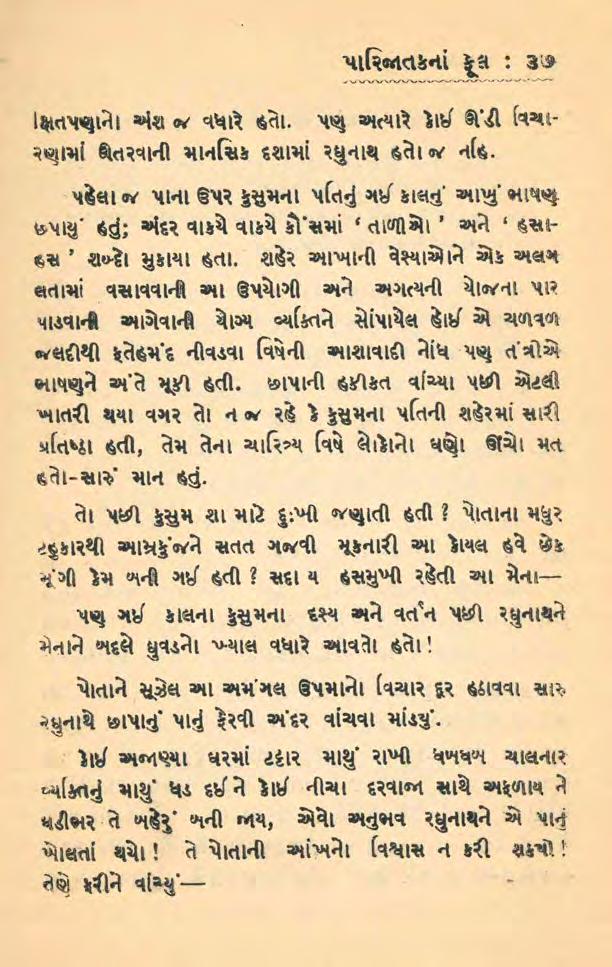 પારિજાતકનાં ફૂલ : ૩૭
ક્ષિતપણાનો અંશ જ વધારે હતો. પણ અત્યારે કોઈ ઊંડી વિચા-
રણામાં ઊતરવાની માનસિક દશામાં રઘુનાથ હતો જ નહિ.
પહેલા જ પાના ઉપર કુસુમના પતિનું ગઈ કાલનું આખું ભાષણ
છપાયું હતું; અંદર વાક્યે વાક્યે કૌંસમાં ‘ તાળીઓ ’ અને ‘ હસા-
હસ ’ શબ્દો મુકાયા હતા. શહેર આખાની વેશ્યાઓને એક અલગ
લતામાં વસાવવાની આ ઉપયોગી અને અગત્યની યોજના પાર
પાડવાની આગેવાની યોગ્ય વ્યક્તિને સોંપાયેલ હોઈ એ ચળવળ
જલદીથી ફતેહમંદ નીવડવા વિષેની આશાવાદી નોંધ પણ તંત્રીએ
ભાષણને અંતે મૂકી હતી. છાપાની હકીકત વાંચ્યા પછી એટલી
ખાતરી થયા વગર તો ન જ રહે કે કુસુમના પતિની શહેરમાં સારી
પ્રતિષ્ઠા હતી, તેમ તેના ચારિત્ર્ય વિષે લોકોનો ઘણો ઊંચો મત
હતો-સારું માન હતું.
તો પછી કુસુમ શા માટે દુઃખી જણાતી હતી ? પોતાના મધુર
ટહુકારથી આમ્રકુંજને સતત ગજવી મૂકનારી આ કોયલ હવે છેક
મૂંગી કેમ બની ગઈ હતી ? સદા ય હસમુખી રહેતી આ મેના—
પણ ગઈ કાલના કુસુમના દશ્ય અને વર્તન પછી રઘુનાથને
મેનાને બદલે ઘુવડનો ખ્યાલ વધારે આવતો હતો !
પોતાને સૂઝેલ આ અમંગલ ઉપમાનો વિચાર દૂર હઠાવવા સારુ
રઘુનાથે છાપાનું પાનું ફેરવી અંદર વાંચવા માંડયું.
કોઈ અજાણ્યા ઘરમાં ટટ્ટાર માથું રાખી ધબધબ ચાલનાર
વ્યક્તિનું માથું ધડ દઈ ને કોઈ નીચા દરવાજા સાથે અફળાય ને
ઘડીભર તે બહેરું બની જાય, એવો અનુભવ રઘુનાથને એ પાનું
ખોલતાં થયો ! તે પોતાની આંખનો વિશ્વાસ ન કરી શક્યો !
તેણે ફરીને વાંચ્યું—